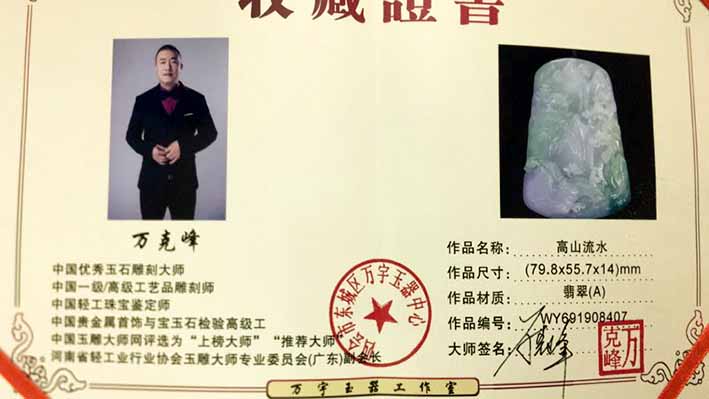 收藏證書
万克峰
中国优秀玉石雕刻大师
中国一级/高级工艺品雕刻师
中国轻工珠宝鉴定师
中国贵金属首饰与宝玉石检验高级工
中国玉雕大师网评选为“上榜大师”“推荐大师”
河南省轻工业行业协会玉雕大师专业委员会(广东)副会长
市东城区万宇玉器中心
作品名称: 高山流水
作品尺寸: (79.8x55.7x14)mm
作品材质: 翡翠(A)
作品编号: WY691908407
大师签名:
万克峰
万宇玉器工作室